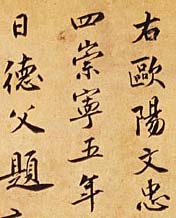 右歐陽文忠
四崇寧五年
日德父題